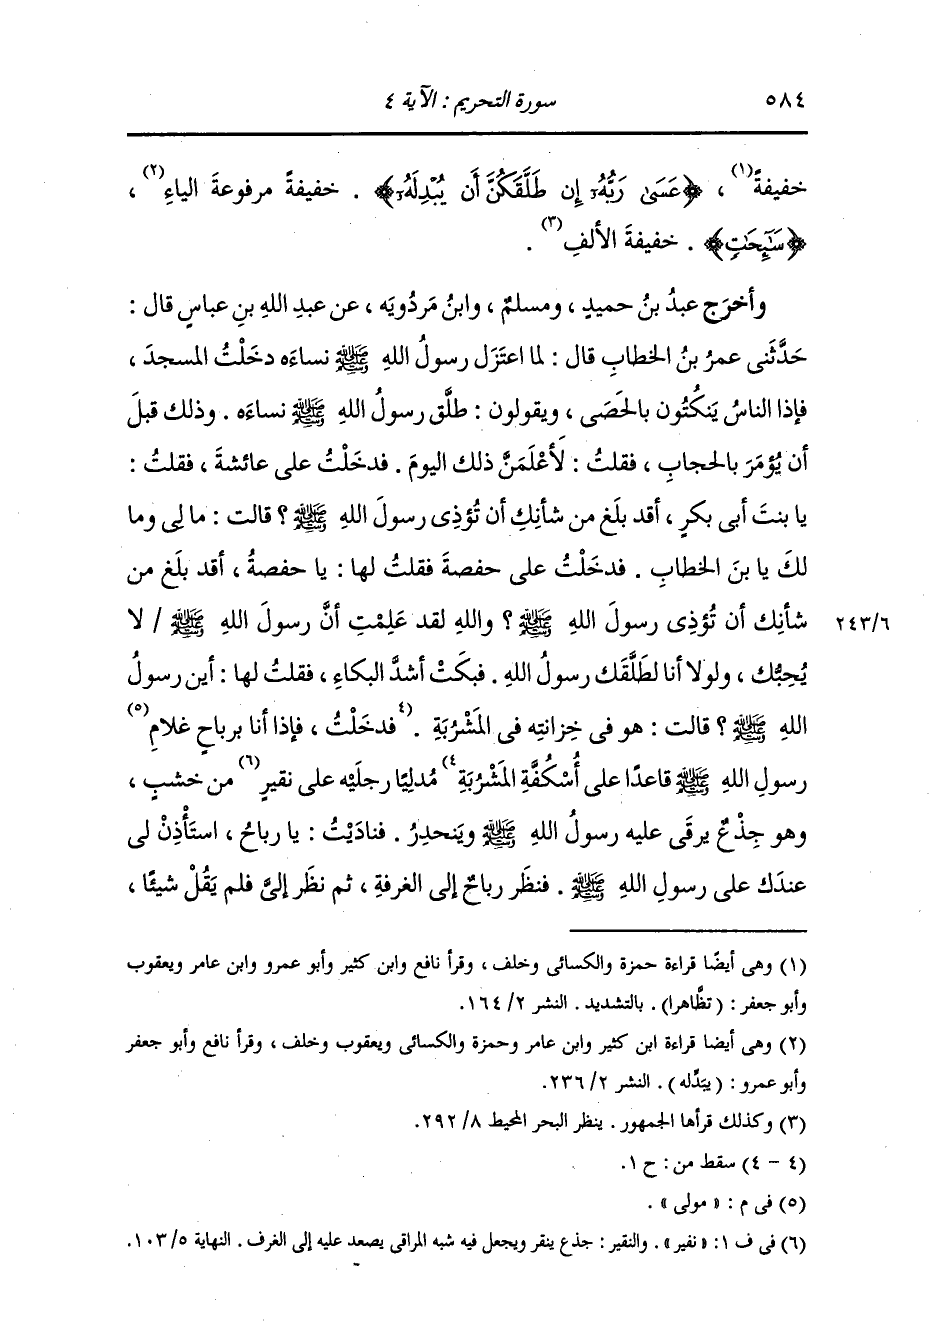 ٥٨٤ سورة التحريم : الآية ٤
خفيفةً(١) ، ﴿عَسَىٰ رَبُّهُۥٓ إِن طَلَّقَكُنَّ أَن يُبْدِلَهُۥٓ﴾ . خفيفةً مرفوعةَ الياءِ(٢) ،
﴿سَٰٓئِحَٰتٍ﴾ . خفيفةَ الألفِ(٣) .
وأخرَج عبدُ بنُ حميدٍ ، ومسلمٌ ، وابنُ مَردُويَه ، عن عبدِ اللهِ بنِ عباسٍ قال :
حَدَّثَنى عمرُ بنُ الخطابِ قال : لما اعتَزَل رسولُ اللهِ ﷺ نساءَه دخَلْتُ المسجدَ ،
فإذا الناسُ يَنكُتُون بالحَصَى ، ويقولون : طلَّق رسولُ اللهِ ﷺ نساءَه . وذلك قبلَ
أن يُؤمَرَ بالحجابِ ، فقلتُ : لَأَعْلَمَنَّ ذلك اليومَ . فدخَلْتُ على عائشةَ ، فقلتُ :
يا بنتَ أبى بكرٍ ، أقد بلَغ من شأنِكِ أن تُؤذِى رسولَ اللهِ ﷺ ؟ قالت : ما لِى وما
لكَ يا بنَ الخطابِ . فدخَلْتُ على حفصةَ فقلتُ لها : يا حفصةُ ، أقد بلَغ من
شأنِك أن تُؤذِى رسولَ اللهِ ﷺ ؟ واللهِ لقد عَلِمْتِ أنَّ رسولَ اللهِ ﷺ / لا ٢٤٣/٦
يُحِبُّك ، ولولا أنا لطَلَّقَك رسولُ اللهِ . فبكَتْ أشدَّ البكاءِ ، فقلتُ لها : أين رسولُ
اللهِ ﷺ ؟ قالت : هو فى خِزانتِه فى المَشْرُبَةِ . (٤فدخَلْتُ ، فإذا أنا برباحٍ غلامِ(٥)
رسولِ اللهِ ﷺ قاعدًا على أُسْكُفَّةِ المَشْرُبَةِ٤) مُدلِيًا رجلَيْه على نقيرٍ(٦) من خشبٍ ،
وهو جِذْعٌ يرقَى عليه رسولُ اللهِ ﷺ ويَنحدِرُ . فنادَيْتُ : يا رباحُ ، استَأْذِنْ لى
عندَك على رسولِ اللهِ ﷺ . فنظَر رباحٌ إلى الغرفةِ ، ثم نظَر إلىَّ فلم يَقُلْ شيئًا ،
(١) وهى أيضًا قراءة حمزة والكسائى وخلف ، وقرأ نافع وابن كثير وأبو عمرو وابن عامر ويعقوب
وأبو جعفر : (تظَّاهرا) . بالتشديد . النشر ٢/ ١٦٤.
(٢) وهى أيضا قراءة ابن كثير وابن عامر وحمزة والكسائى ويعقوب وخلف ، وقرأ نافع وأبو جعفر
وأبو عمرو : (يبَدِّله) . النشر ٢/ ٢٣٦.
(٣) وكذلك قرأها الجمهور . ينظر البحر المحيط ٨/ ٢٩٢.
(٤ - ٤) سقط من : ح ١.
(٥) فى م : « مولى » .
(٦) فى ف ١: «نفير» . والنقير : جذع ينقر ويجعل فيه شبه المراقى يصعد عليه إلى الغرف . النهاية ٥/ ١٠٣.